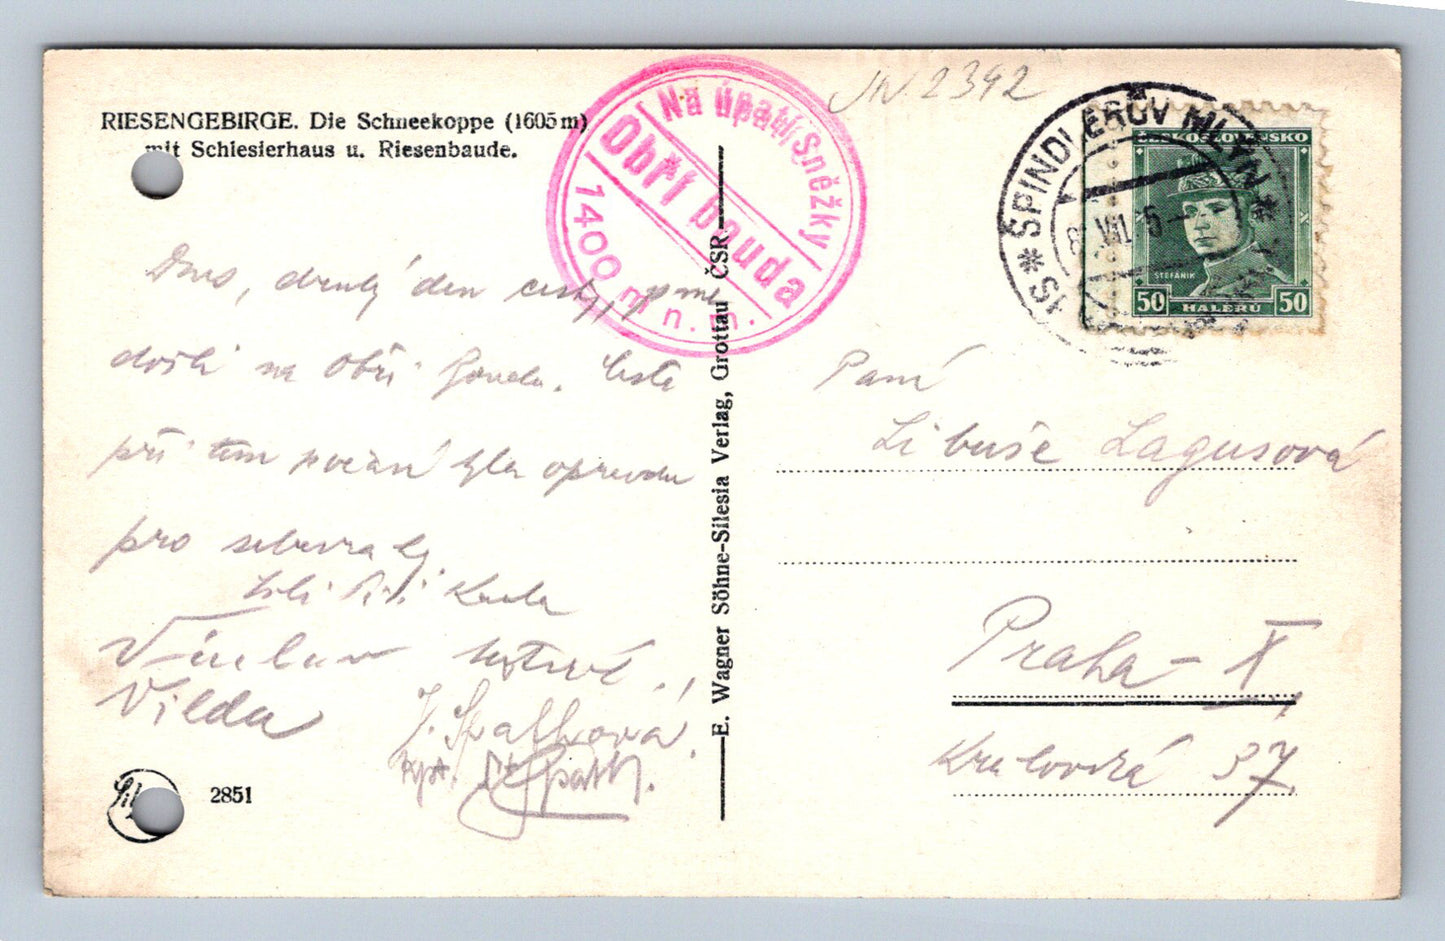 RIESENGEBIRGE. Die Schneekoppe (1605 m)
mit Schlesierhaus u. Riesenbaude.
Na úpatí Sněžky
Obří bouda
1400 m n. m.
2392
* ŠPINDLERŮV MLÝN *
VII. 35
ČESKOSLOVENSKO
ŠTEFÁNIK
50 HALÉŘŮ 50
Dnes, druhý den cesty, jsme
došli na Obří boudu. Cesta
při tom počasí byla opravdu
pro sebevrahy
Václav
Vilda
J. Spálková
kpt.
2851
E. Wagner Söhne-Silesia Verlag, Grottau ČSR.
Paní
Libuše Lagusová
Praha – X,
Královská 37